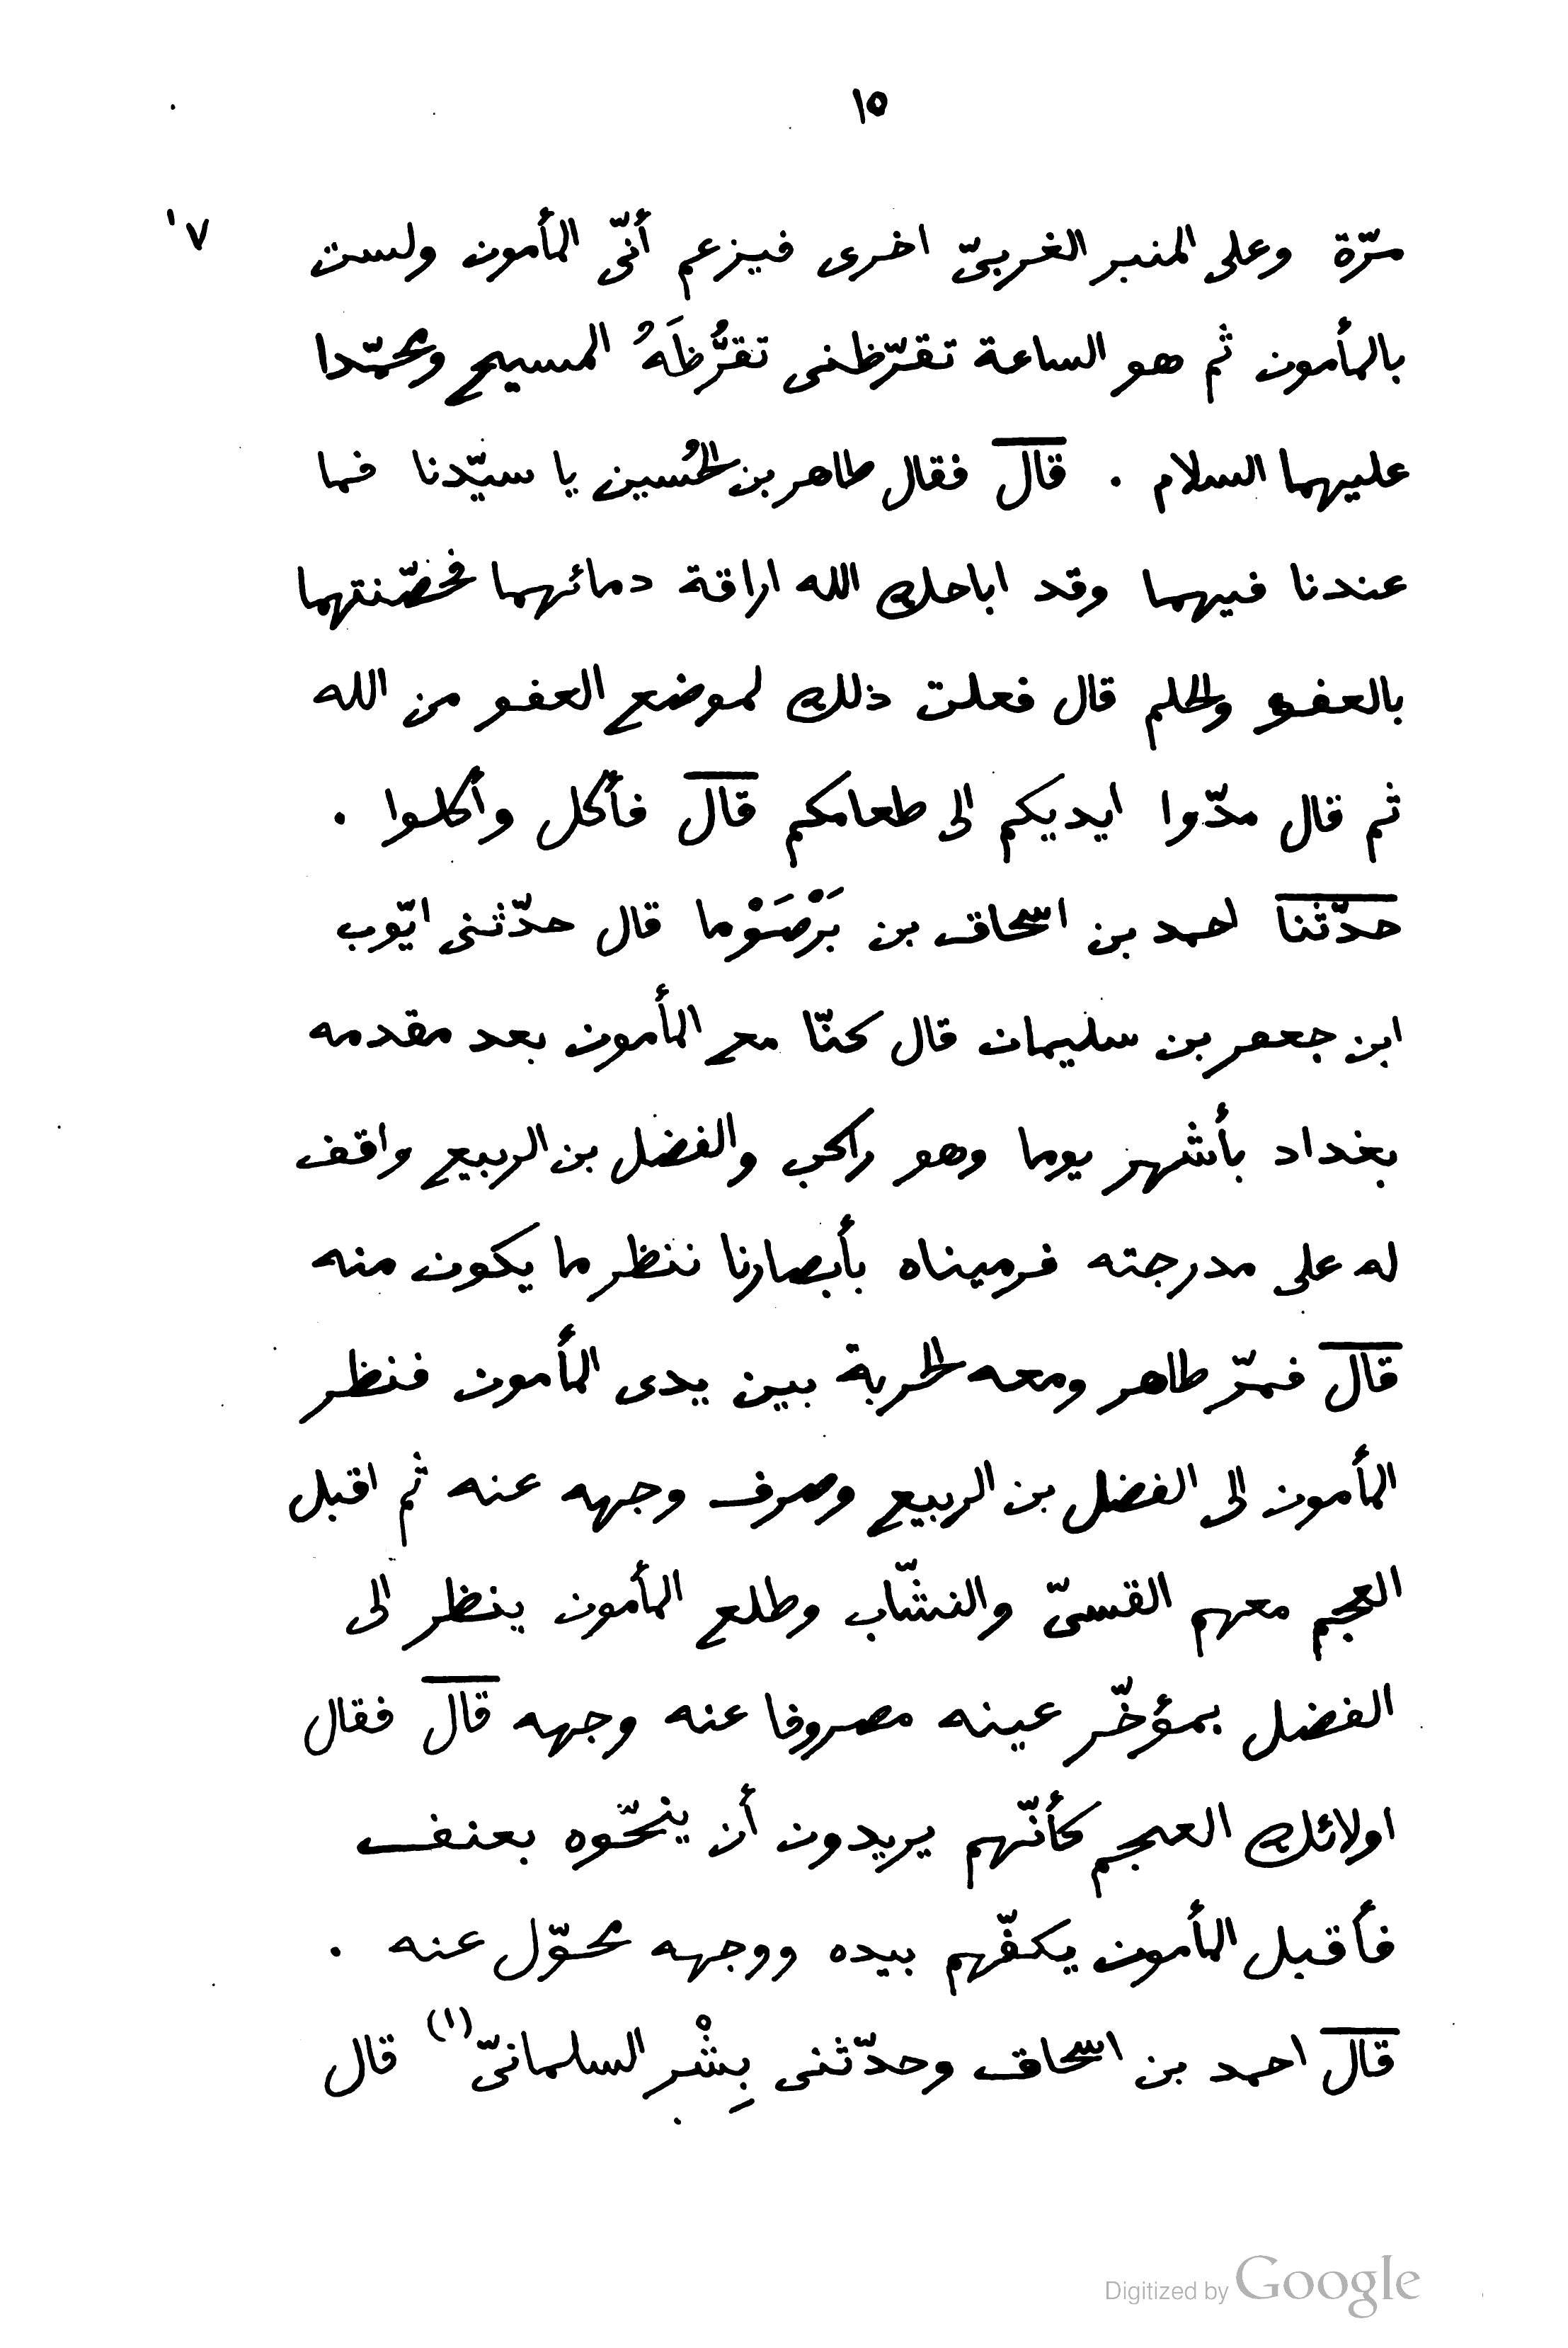 ١٥
٧'
مرّة وعلى المنبر الغربىّ اخرى فيزعم أنّى المأمون ولست
بالمأمون ثم هو الساعة تقرّظنى تقرُّظَهُ المسيح ومحمّدا
عليهما السلام . قال فقال طاهر بن الحُسين يا سيّدنا فما
عندنا فيهما وقد اباحك الله اراقة دمائهما فحصّنتهما
بالعفو والحلم قال فعلت ذلك لموضع العفو من الله
ثم قال مدّوا ايديكم الى طعامكم قال فأكل وأكلوا .
حدّثنا احمد بن اسحاق بن بَرْصَوْما قال حدّثنى ايّوب
ابن جعفر بن سليمان قال كنّا مع المأمون بعد مقدمه
بغداد بأشهر يوما وهو راكب والفضل بن الربيع واقف
له على مدرجته فرميناه بأبصارنا ننظر ما يكون منه
قال فمرّ طاهر ومعه الحربة بين يدى المأمون فنظر
المأمون الى الفضل بن الربيع وصرف وجهه عنه ثم اقبل
العجم معهم القسىّ والنشّاب وطلع المأمون ينظر الى
الفضل بمؤخّر عينه مصروفا عنه وجهه قال فقال
اولائك العجم كأنّهم يريدون أن ينحّوه بعنف
فأقبل المأمون يكفّهم بيده ووجهه محوّل عنه .
قال احمد بن اسحاق وحدّثنى بِشْر السلمانىّ (١) قال
Digitized by Google